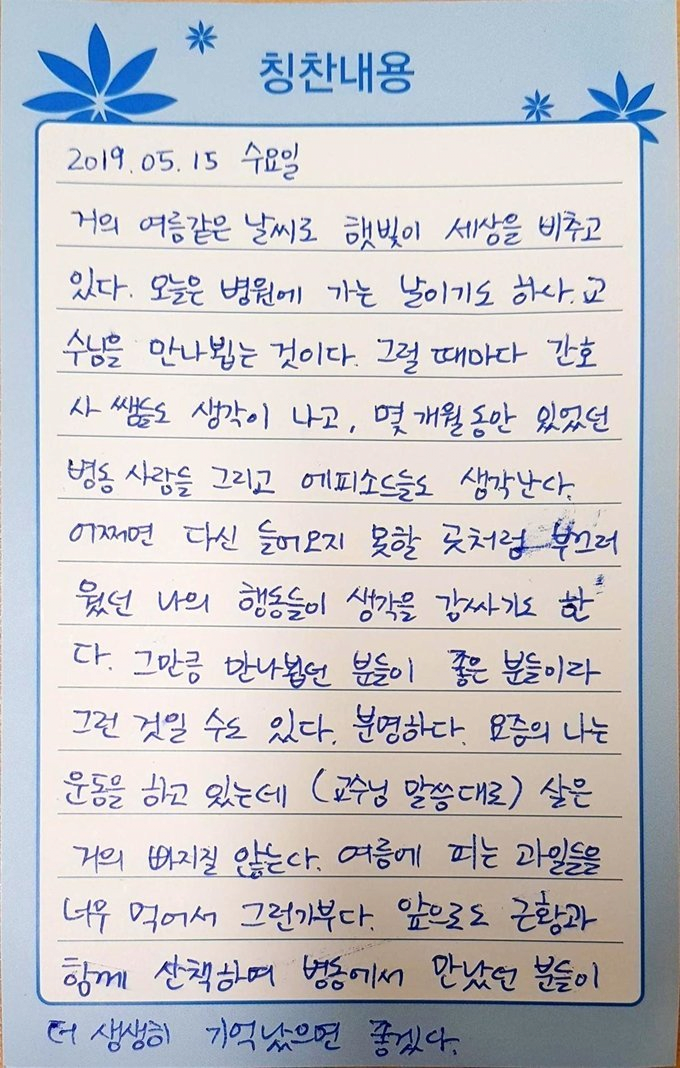 칭찬내용
2019.05.15 수요일
거의 여름같은 날씨로 햇빛이 세상을 비추고
있다. 오늘은 병원에 가는 날이기도 하사. 교
수님을 만나뵙는 것이다. 그럴 때마다 간호
사 쌤들도 생각이 나고, 몇 개월 동안 있었던
병동 사람들 그리고 에피소드들도 생각난다.
어쩌면 다신 들어오지 못할 곳처럼 부끄러
웠던 나의 행동들이 생각을 감싸기도 한
다. 그만큼 만나뵙던 분들이 좋은 분들이라
그런 것일 수도 있다. 분명하다. 요즘의 나는
운동을 하고 있는데 (교수님 말씀대로) 살은
거의 빠지질 않는다. 여름에 피는 과일들을
너무 먹어서 그런가부다. 앞으로도 근황과
함께 산책하며 병동에서 만났던 분들이
더 생생히 기억났으면 좋겠다.